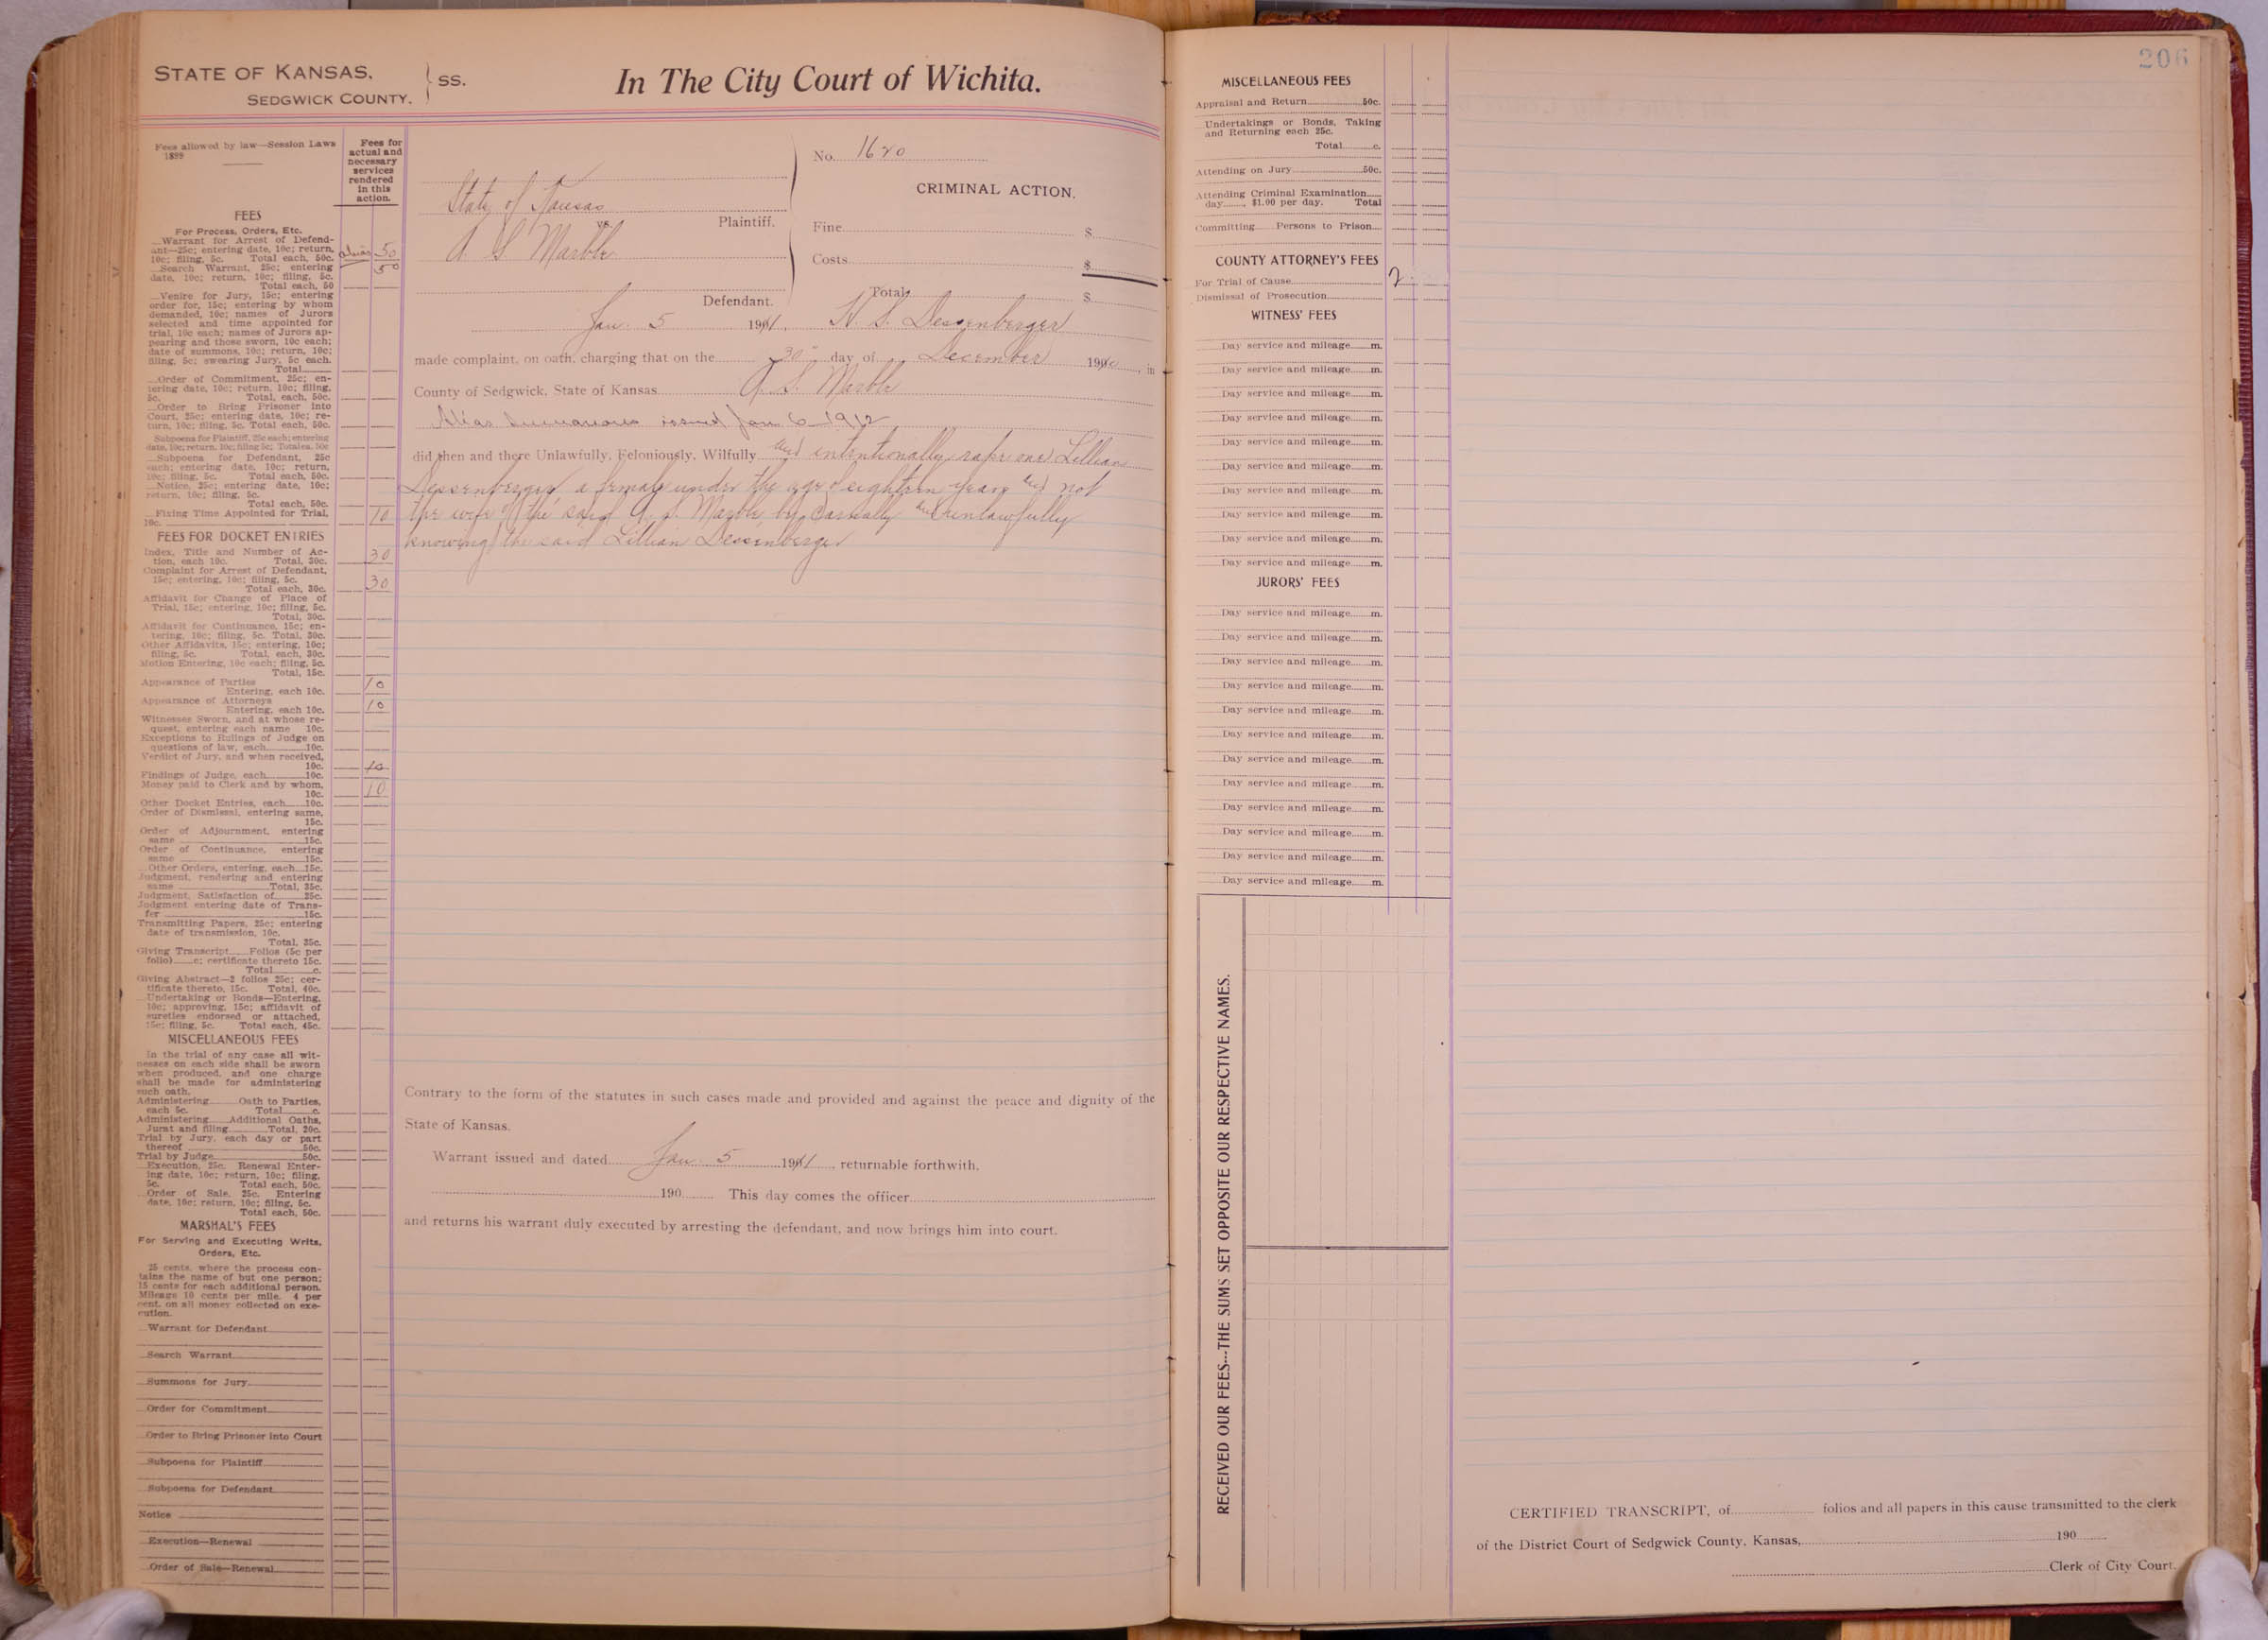 STATE OF KANSAS,
SEDGWICK COUNTY.
SS.
In The City Court of Wichita.
Fees allowed by law—Session Laws
1899
Fees for
actual and
necessary
services
rendered
in this
action.
FEES
For Process, Orders, Etc.
Warrant for Arrest of Defend-
ant—25c; entering date, 10c; return,
10c; filing, 5c. Total each, 50c. alias 50
Search Warrant, 25c; entering 50
date, 10c; return, 10c; filing, 5c.
Total each, 50
Venire for Jury, 15c; entering
order for, 15c; entering by whom
demanded, 10c; names of Jurors
selected and time appointed for
trial, 10c each; names of Jurors ap-
pearing and those sworn, 10c each;
date of summons, 10c; return, 10c;
filing, 5c; swearing Jury, 5c each.
Total
Order of Commitment, 25c; en-
tering date, 10c; return, 10c; filing,
5c. Total, each, 50c.
Order to Bring Prisoner into
Court, 25c; entering date, 10c; re-
turn, 10c; filing, 5c. Total each, 50c.
Subpoena for Plaintiff, 25c each; entering
date, 10c; return, 10c; filing 5c; Total ea. 50c
Subpoena for Defendant, 25c
each; entering date, 10c; return,
10c; filing, 5c. Total each, 50c.
Notice, 25c; entering date, 10c;
return, 10c; filing, 5c.
Total each, 50c.
Fixing Time Appointed for Trial,
10c. 10
FEES FOR DOCKET ENTRIES
Index, Title and Number of Ac-
tion, each 10c. Total, 30c. 30
Complaint for Arrest of Defendant,
15c; entering, 10c; filing, 5c.
Total each, 30c. 30
Affidavit for Change of Place of
Trial, 15c; entering, 10c; filing, 5c.
Total, 30c.
Affidavit for Continuance, 15c; en-
tering, 10c; filing, 5c. Total, 30c.
Other Affidavits, 15c; entering, 10c;
filing, 5c. Total, each, 30c.
Motion Entering, 10c each; filing, 5c.
Total, 15c.
Appearance of Parties
Entering, each 10c. 10
Appearance of Attorneys
Entering, each 10c. 10
Witnesses Sworn, and at whose re-
quest, entering each name 10c.
Exceptions to Rulings of Judge on
questions of law, each 10c.
Verdict of Jury, and when received,
10c. 10
Findings of Judge, each 10c.
Money paid to Clerk and by whom,
10c. 10
Other Docket Entries, each 10c.
Order of Dismissal, entering same,
15c.
Order of Adjournment, entering
same 15c.
Order of Continuance, entering
same 15c.
Other Orders, entering, each 15c.
Judgment, rendering and entering
same Total, 35c.
Judgment, Satisfaction of 25c.
Judgment entering date of Trans-
fer 15c.
Transmitting Papers, 25c; entering
date of transmission, 10c.
Total, 35c.
Giving Transcript Folios (5c per
folio) c; certificate thereto 15c.
Total c.
Giving Abstract—2 folios 25c; cer-
tificate thereto, 15c. Total, 40c.
Undertaking or Bonds—Entering,
10c; approving, 15c; affidavit of
sureties endorsed or attached,
15c; filing, 5c. Total each, 45c.
MISCELLANEOUS FEES
In the trial of any case all wit-
nesses on each side shall be sworn
when produced, and one charge
shall be made for administering
such oath.
Administering Oath to Parties,
each 5c. Total c.
Administering Additional Oaths,
Jurat and filing Total, 20c.
Trial by Jury, each day or part
thereof 50c.
Trial by Judge 50c.
Execution, 25c. Renewal Enter-
ing date, 10c; return, 10c; filing,
5c. Total each, 50c.
Order of Sale, 25c. Entering
date, 10c; return, 10c; filing, 5c.
Total each, 50c.
MARSHAL'S FEES
For Serving and Executing Writs,
Orders, Etc.
25 cents, where the process con-
tains the name of but one person;
15 cents for each additional person.
Mileage 10 cents per mile. 4 per
cent. on all money collected on exe-
cution.
Warrant for Defendant
Search Warrant
Summons for Jury
Order for Commitment
Order to Bring Prisoner into Court
Subpoena for Plaintiff
Subpoena for Defendant
Notice
Execution—Renewal
Order of Sale—Renewal
State of Kansas
Plaintiff.
vs.
A. S. Marble
Defendant.
No. 1620
CRIMINAL ACTION.
Fine $
Costs $
Total $
Jan. 5 1911, H. S. Dessenberger
made complaint, on oath, charging that on the 30" day of December 1910, in
County of Sedgwick, State of Kansas A. S. Marble
Alias Summons issued Jan 6 1912
did then and there Unlawfully, Feloniously, Wilfully and intentionally rape one Lillian
Dessenberger a female under the age of eighteen years and not
the wife of the said A. S. Marble by Carnally and unlawfully
knowing the said Lillian Dessenberger
Contrary to the form of the statutes in such cases made and provided and against the peace and dignity of the
State of Kansas.
Warrant issued and dated Jan. 5 1911, returnable forthwith.
190 This day comes the officer
and returns his warrant duly executed by arresting the defendant, and now brings him into court.
206
MISCELLANEOUS FEES
Appraisal and Return 50c.
Undertakings or Bonds, Taking
and Returning each 25c.
Total c.
Attending on Jury 50c.
Attending Criminal Examination
day, $1.00 per day. Total
Committing Persons to Prison
COUNTY ATTORNEY'S FEES
For Trial of Cause 2
Dismissal of Prosecution
WITNESS' FEES
Day service and mileage m.
Day service and mileage m.
Day service and mileage m.
Day service and mileage m.
Day service and mileage m.
Day service and mileage m.
Day service and mileage m.
Day service and mileage m.
Day service and mileage m.
Day service and mileage m.
JURORS' FEES
Day service and mileage m.
Day service and mileage m.
Day service and mileage m.
Day service and mileage m.
Day service and mileage m.
Day service and mileage m.
Day service and mileage m.
Day service and mileage m.
Day service and mileage m.
Day service and mileage m.
Day service and mileage m.
Day service and mileage m.
RECEIVED OUR FEES---THE SUMS SET OPPOSITE OUR RESPECTIVE NAMES.
CERTIFIED TRANSCRIPT, of folios and all papers in this cause transmitted to the clerk
of the District Court of Sedgwick County, Kansas, 190
Clerk of City Court.